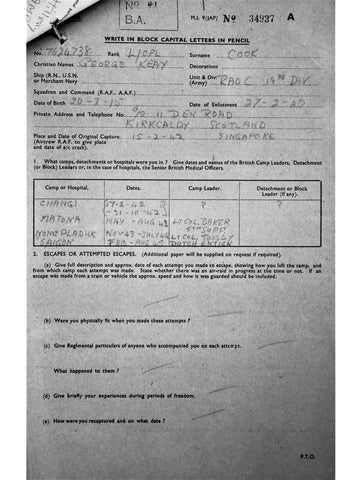 No 41
B.A.
M.I. 9/JAP/ No 34927 A
WRITE IN BLOCK CAPITAL LETTERS IN PENCIL
No. 7624738 Rank L/CPL Surname COOK
Christian Names GEORGE KEAY Decorations
Ship (R.N., U.S.N. or Merchant Navy) Unit & Div. (Army) RAOC 18TH DIV.
Squadron and Command (R.A.F., A.A.F.)
Date of Birth 20-7-15 Date of Enlistment 27-2-40
Private Address and Telephone No. C/O 11 DEN ROAD
KIRKCALDY SCOTLAND
Place and Date of Original Capture 15-2-42 SINGAPORE
(Aircrew R.A.F. to give place
and date of a/c crash).
1. What camps, detachments or hospitals were you in? Give dates and names of the British Camp Leaders, Detachment
(or Block) Leaders or, in the case of hospitals, the Senior British Medical Officers.
Camp or Hospital. Dates. Camp Leader. Detachment or Block
Leader (if any).
CHANGI 17-2-42 ? ?
-31-10-42
MAY - AUG 43 LT COL. BAKER
5TH SUFF.
NONG PLADUK NOV 43 - JULY 44 LT COL. TOOSEY
SAIGON FEB - AUG 45 DUTCH ENSIGN
2. ESCAPES OR ATTEMPTED ESCAPES. (Additional paper will be supplied on request if required).
(a) Give full description and approx. date of each attempt you made to escape, showing how you left the camp, and
from which camp each attempt was made. State whether there was an air-raid in progress at the time or not. If an
escape was made from a train or vehicle the approx. speed and how it was guarded should be included.
(b) Were you physically fit when you made these attempts?
(c) Give Regimental particulars of anyone who accompanied you on each attempt.
What happened to them?
(d) Give briefly your experiences during periods of freedom.
(e) How were you recaptured and on what date?
P.T.O.